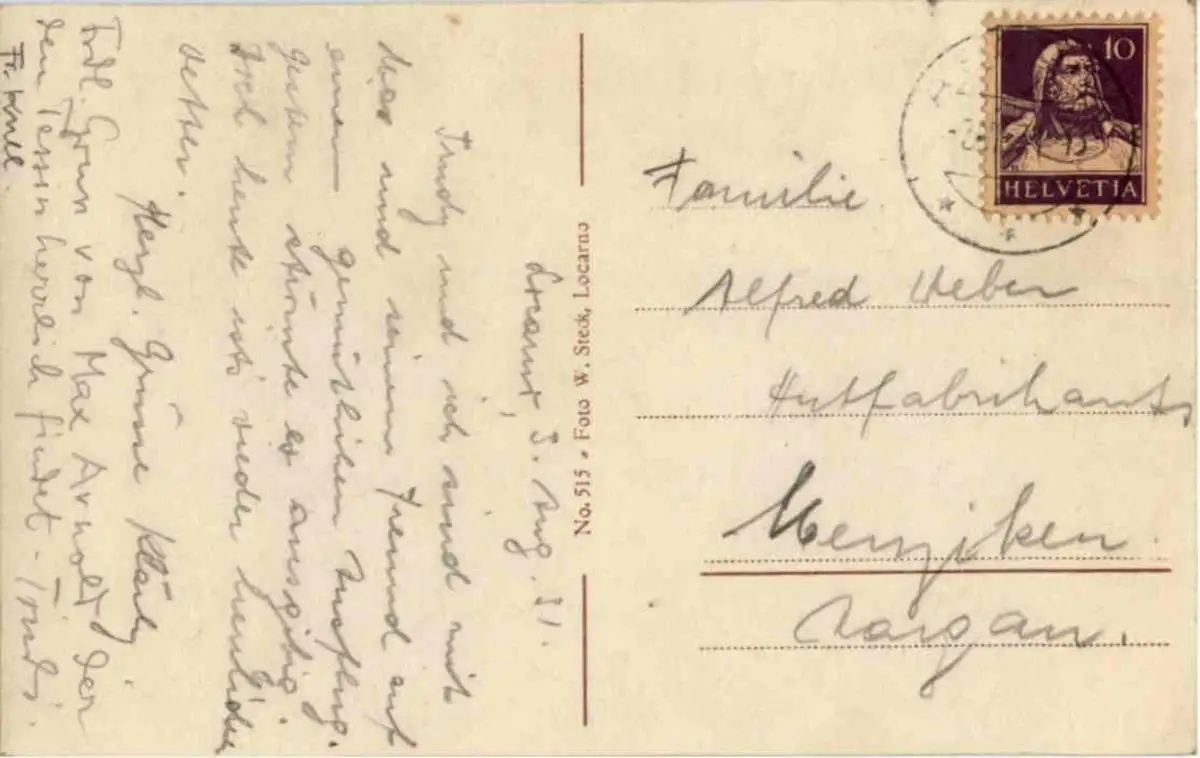 Locarno, 3. Aug. 31.
Trudy und ich sind mit
Max und seinem Freund auf
einem gemütlichen Ausflug.
Gestern strömte es ausgibig.
Doch heute ists wieder herrliches
Wetter.
Herzl. Grüsse Kläily.
Frdl. Gruss von Max Arnold der
den Tessin herrlich findet - Trudi.
Fr.
No. 515 • Foto W. Steck, Locarno
10
HELVETIA
Familie
Alfred Weber
Hutfabrikants
Menziken
Aargau.